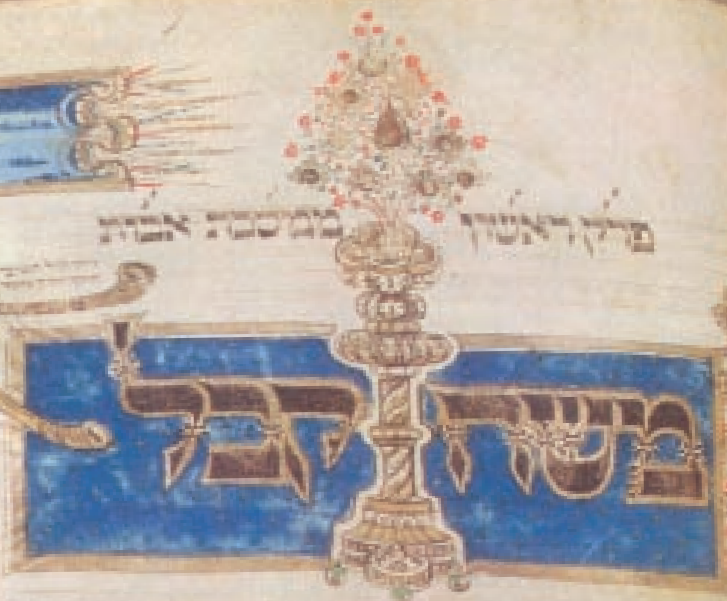 פרק ראשון ממסכת אבות
משה קבל